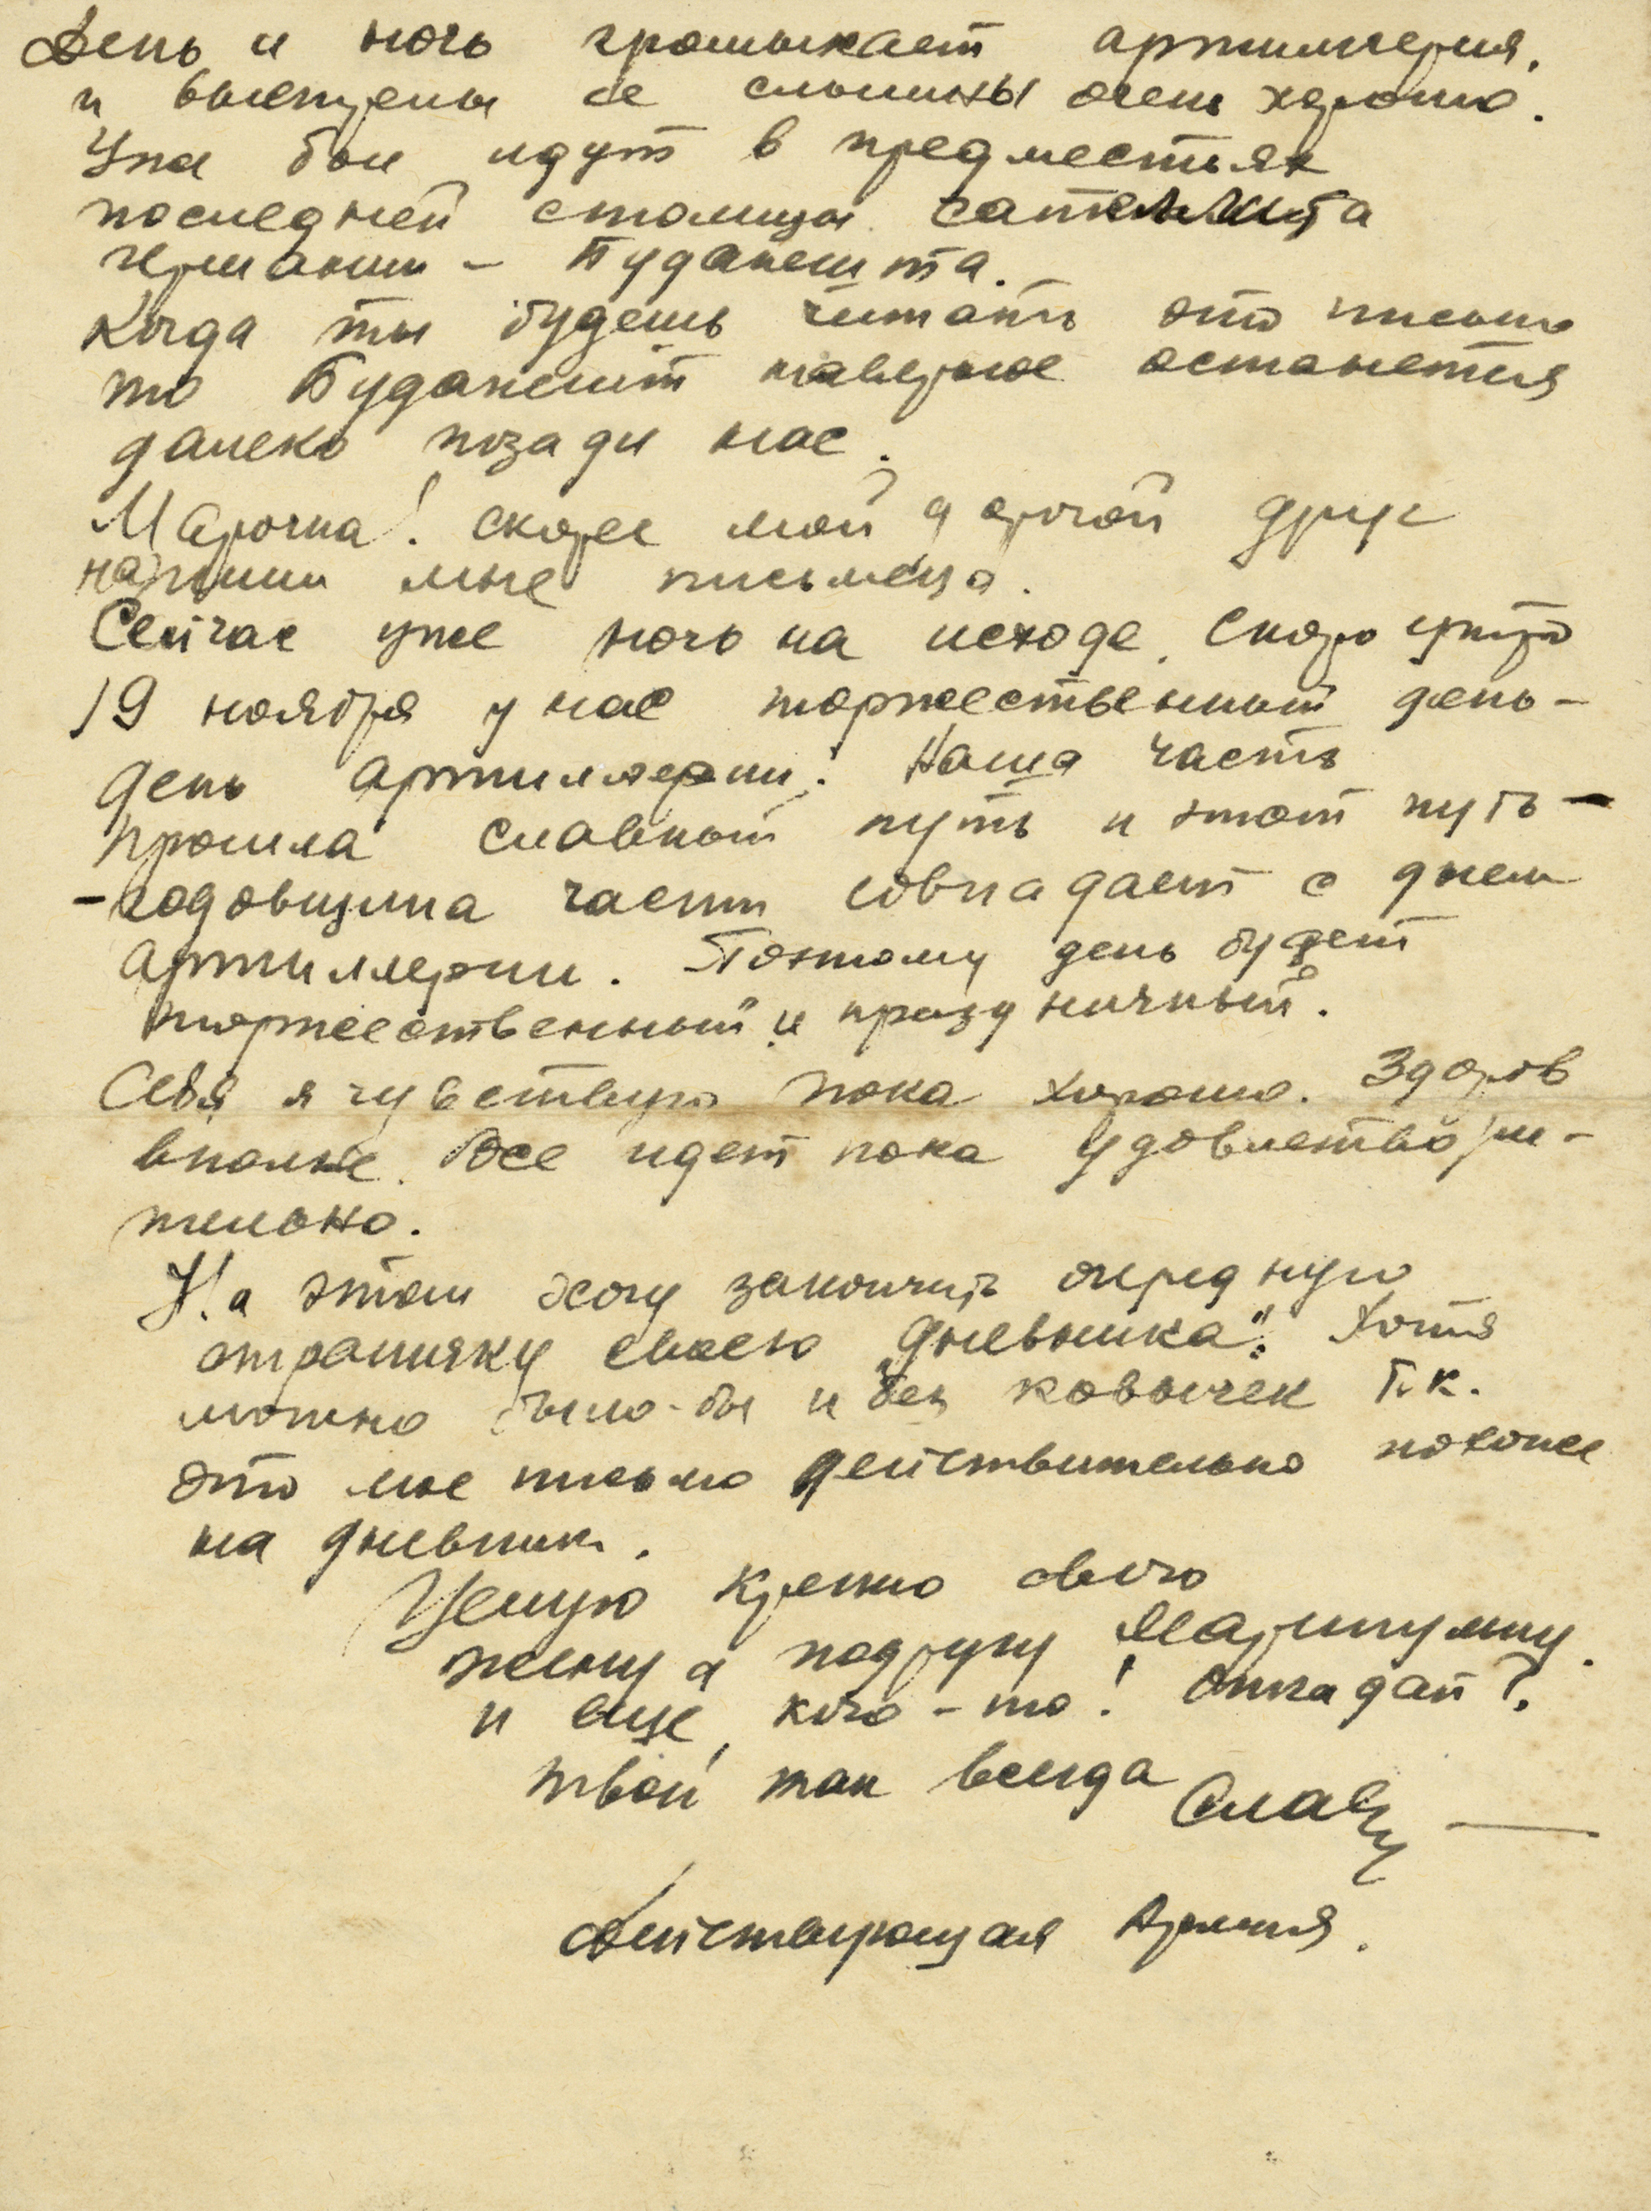 День и ночь громыхает артиллерия,
и выстрелы ее слышны очень хорошо.
Уже бои идут в предместьях
последней столицы сателлита
германии - Будапешта.
Когда ты будешь читать это письмо
то Будапешт наверное останется
далеко позади нас.
Марочка! скорее мой дорогой друг
напиши мне письмецо.
Сейчас уже ночь на исходе. Скоро утро
19 ноября у нас торжественный день -
день артиллерии. Наша часть
прошла славный путь и этот путь -
- годовщина части совпадает с днем
артиллерии. Поэтому день будет
торжественный и праздничный.
Себя я чувствую пока хорошо. Здоров
вполне. Все идет пока удовлетвори-
тельно.
На этом хочу закончить очередную
страничку своего "дневника". Хотя
можно было-бы и без ковычек т.к.
это мое письмо действительно похоже
на дневник.
Целую крепко свою
жену и подругу
и еще кого-то! Отгадай?
Твой как всегда Слава
Действующая Армия.